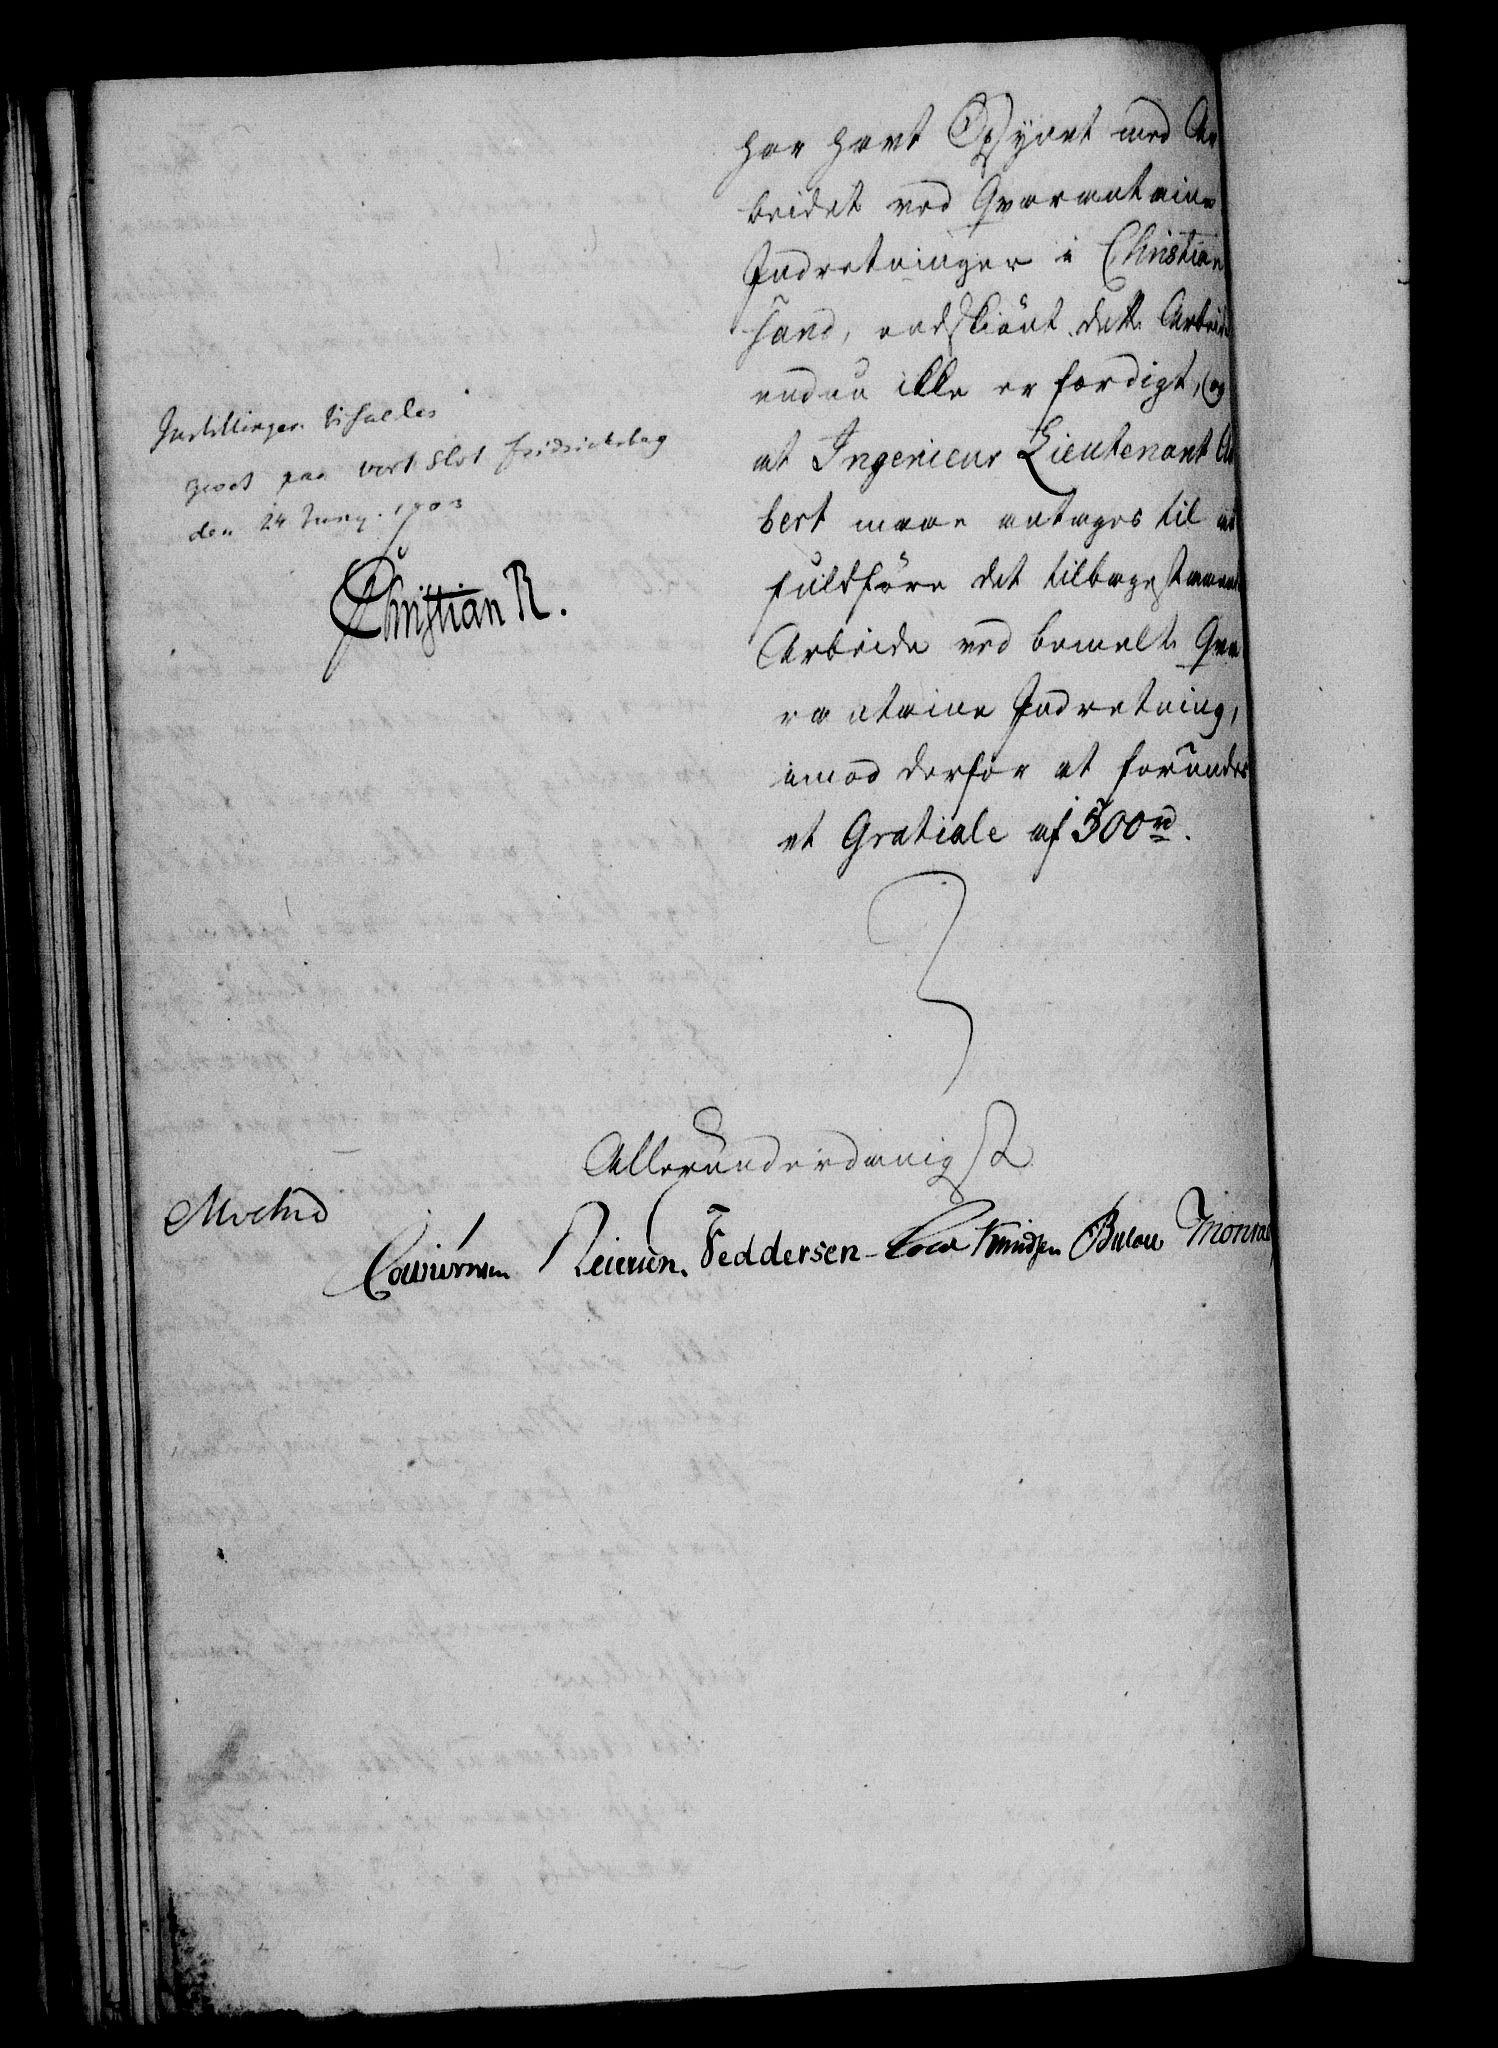 har havt Opsynet med Ar
beidet ved Qvarantaine
Indretningen i Christian
sand, endskiönt dette Arbeide
endnu ikke er færdigt, og
at Ingenieur Lieutenant Au
bert maae antages til at
fuldföre det tilbagestaaende
Arbeide ved bemelte Qva
rantaine Indretning,
imod derfor at forundes
et Gratiale af 300 rd.
Indstillingen bifaldes
givet paa vort Slot Fridrichsberg
den 24 Juny. 1803
Christian R.
Allerunderdanigst
Reiersen. Feddersen Knudsen Bülow Monrad